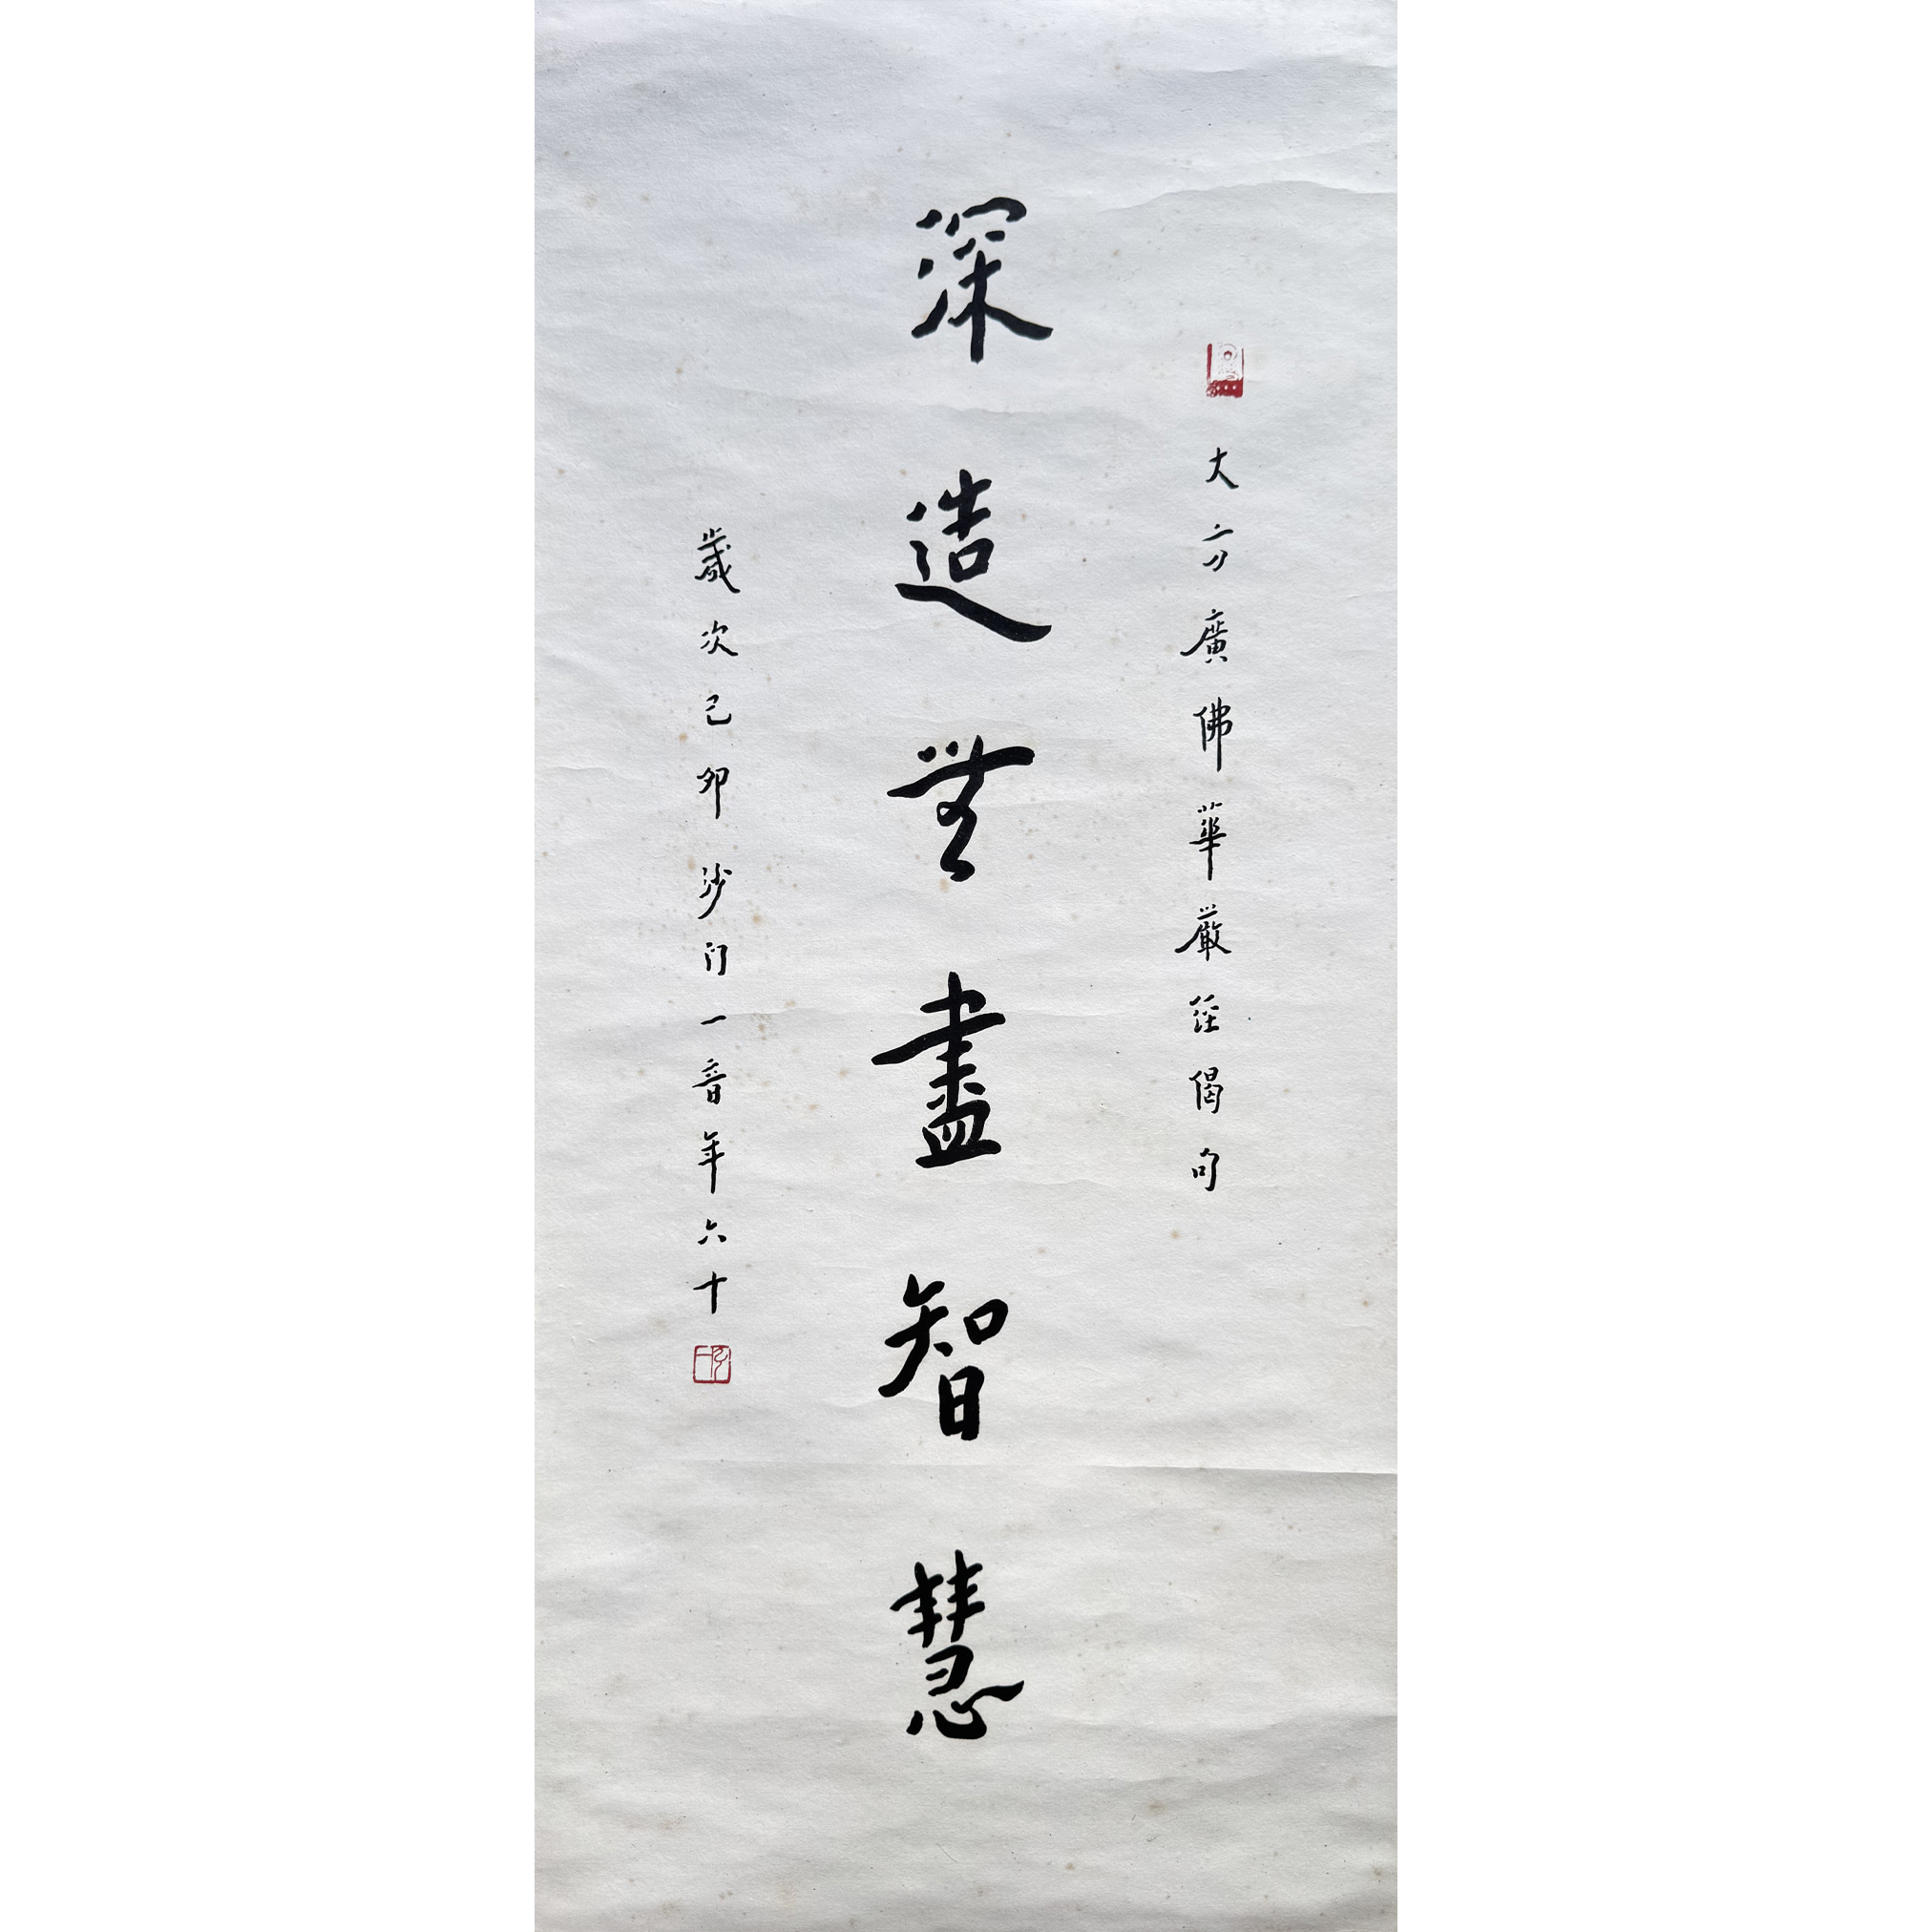 大方廣佛華嚴經偈句
深造無盡智慧
歲次己卯沙门一音年六十